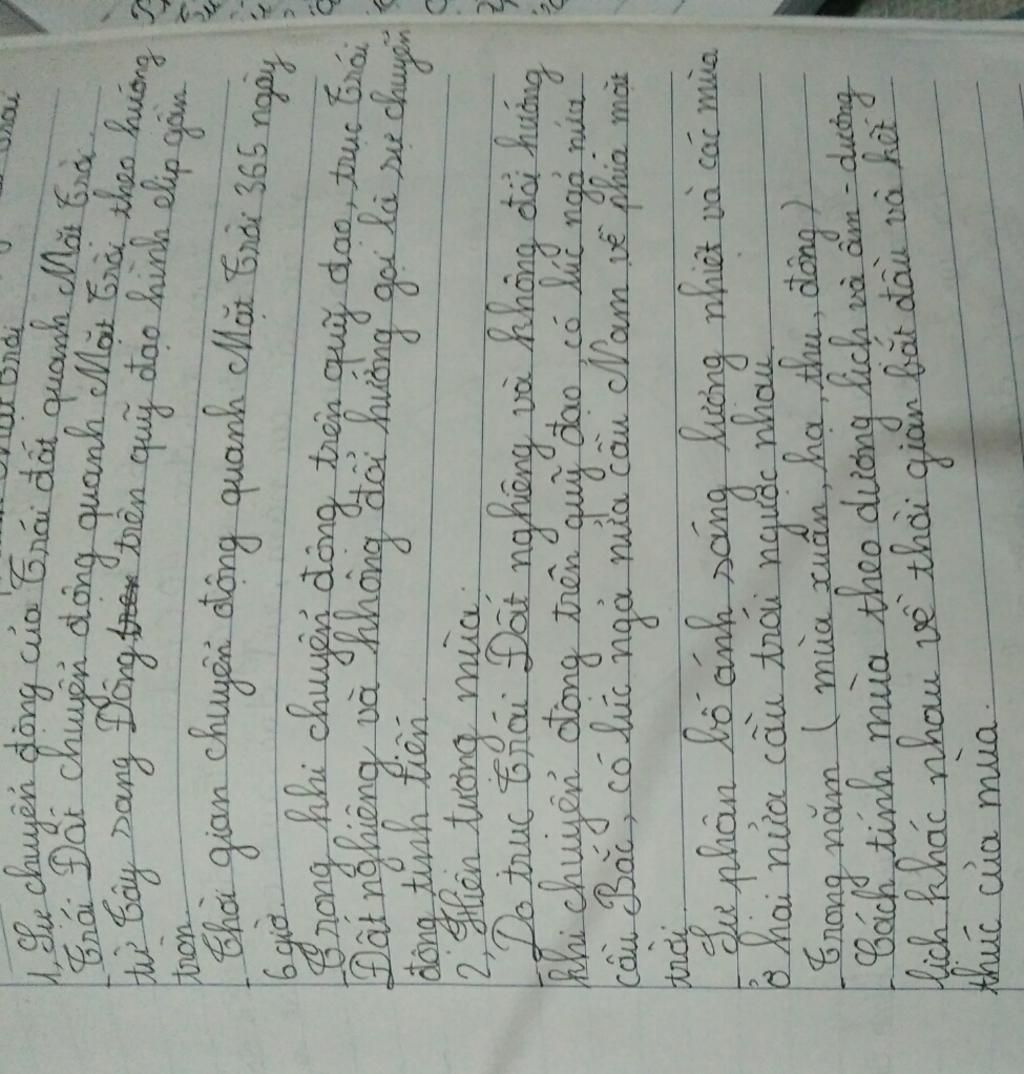 1, Sự chuyển động của Trái đất quanh Mặt Trời.
- Trái Đất chuyển động quanh Mặt Trời theo hướng
từ Tây sang Đông trên quỹ đạo hình elip gần
tròn
- Thời gian chuyển động quanh Mặt Trời 365 ngày
6 giờ.
- Trong khi chuyển động trên quỹ đạo, trục Trái
Đất nghiêng và không đổi hướng gọi là sự chuyển
động tịnh tiến.
2, Hiện tượng mùa:
- Do trục Trái Đất nghiêng và không đổi hướng
khi chuyển động trên quỹ đạo có lúc ngả nửa
cầu Bắc, có lúc ngả nửa cầu Nam về phía mặt
trời.
- Sự phân bố ánh sáng lượng nhiệt và các mùa
ở hai nửa cầu trái ngược nhau.
- Trong năm ( mùa xuân, hạ, thu, đông)
- Cách tính mùa theo dương lịch và âm - dương
lịch khác nhau về thời gian bắt đầu và kết
thúc của mùa.